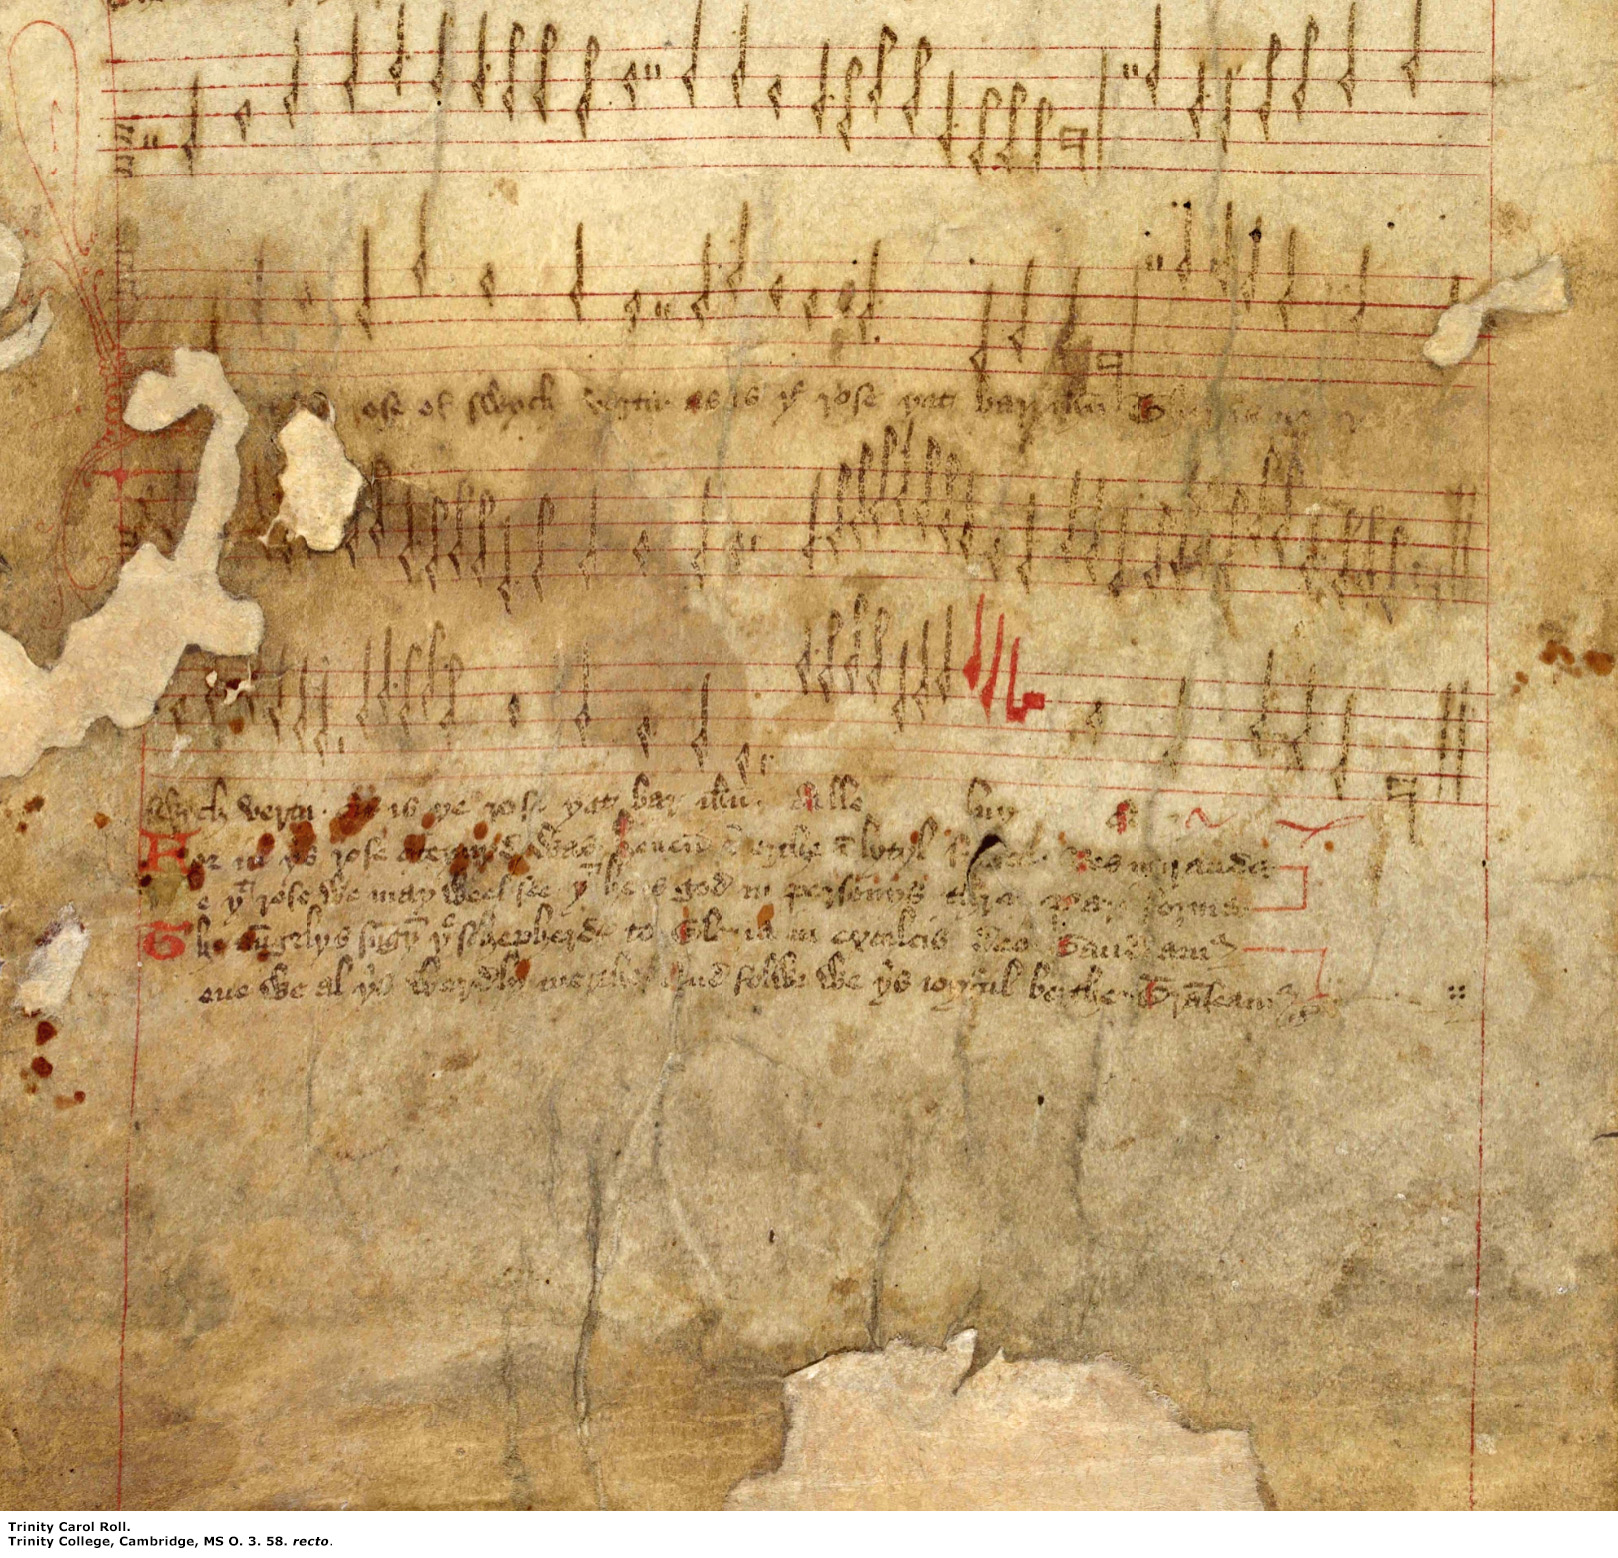 rose of swych vertu as is yͤ rose yat bar ihū Ther is no
swych vertu. As is ye rose yat bar ihū. Alle luy
For in yis rose conteynyd was heuen & erthe ī lytyl space. Res miranda
Be yͭ rose we may weel see yͭ he is god in personys thre Pari forma
The aūgelys sūgyn yͤ scheperdes to Gloria in excelcis deo Gaudeamꝰ
leue we al yis werdly merthe And folwe we yis ioyful berthe Trāseamꝰ
Trinity Carol Roll.
Trinity College, Cambridge, MS O. 3. 58. recto.